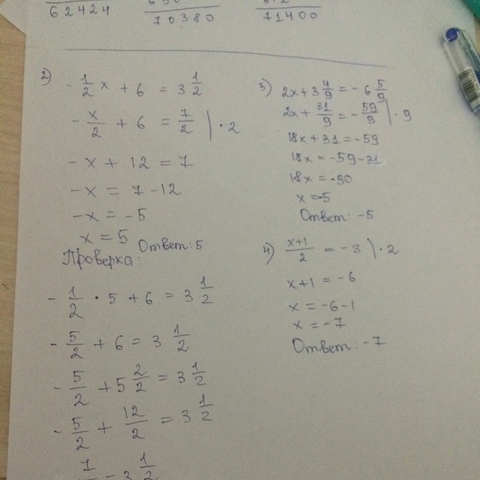 62424
70380
71400
2) -1/2 x + 6 = 3 1/2
-x/2 + 6 = 7/2 | · 2
-x + 12 = 7
-x = 7 - 12
-x = -5
x = 5 Ответ: 5
Проверка:
-1/2 · 5 + 6 = 3 1/2
-5/2 + 6 = 3 1/2
-5/2 + 5 2/2 = 3 1/2
-5/2 + 12/2 = 3 1/2
7/2 = 3 1/2
3) 2x + 3 4/9 = -6 5/9
2x + 31/9 = -59/9 | · 9
18x + 31 = -59
18x = -59 - 31
18x = -90
x = -5
Ответ: -5
4) x+1/2 = -3 | · 2
x + 1 = -6
x = -6 - 1
x = -7
Ответ: -7